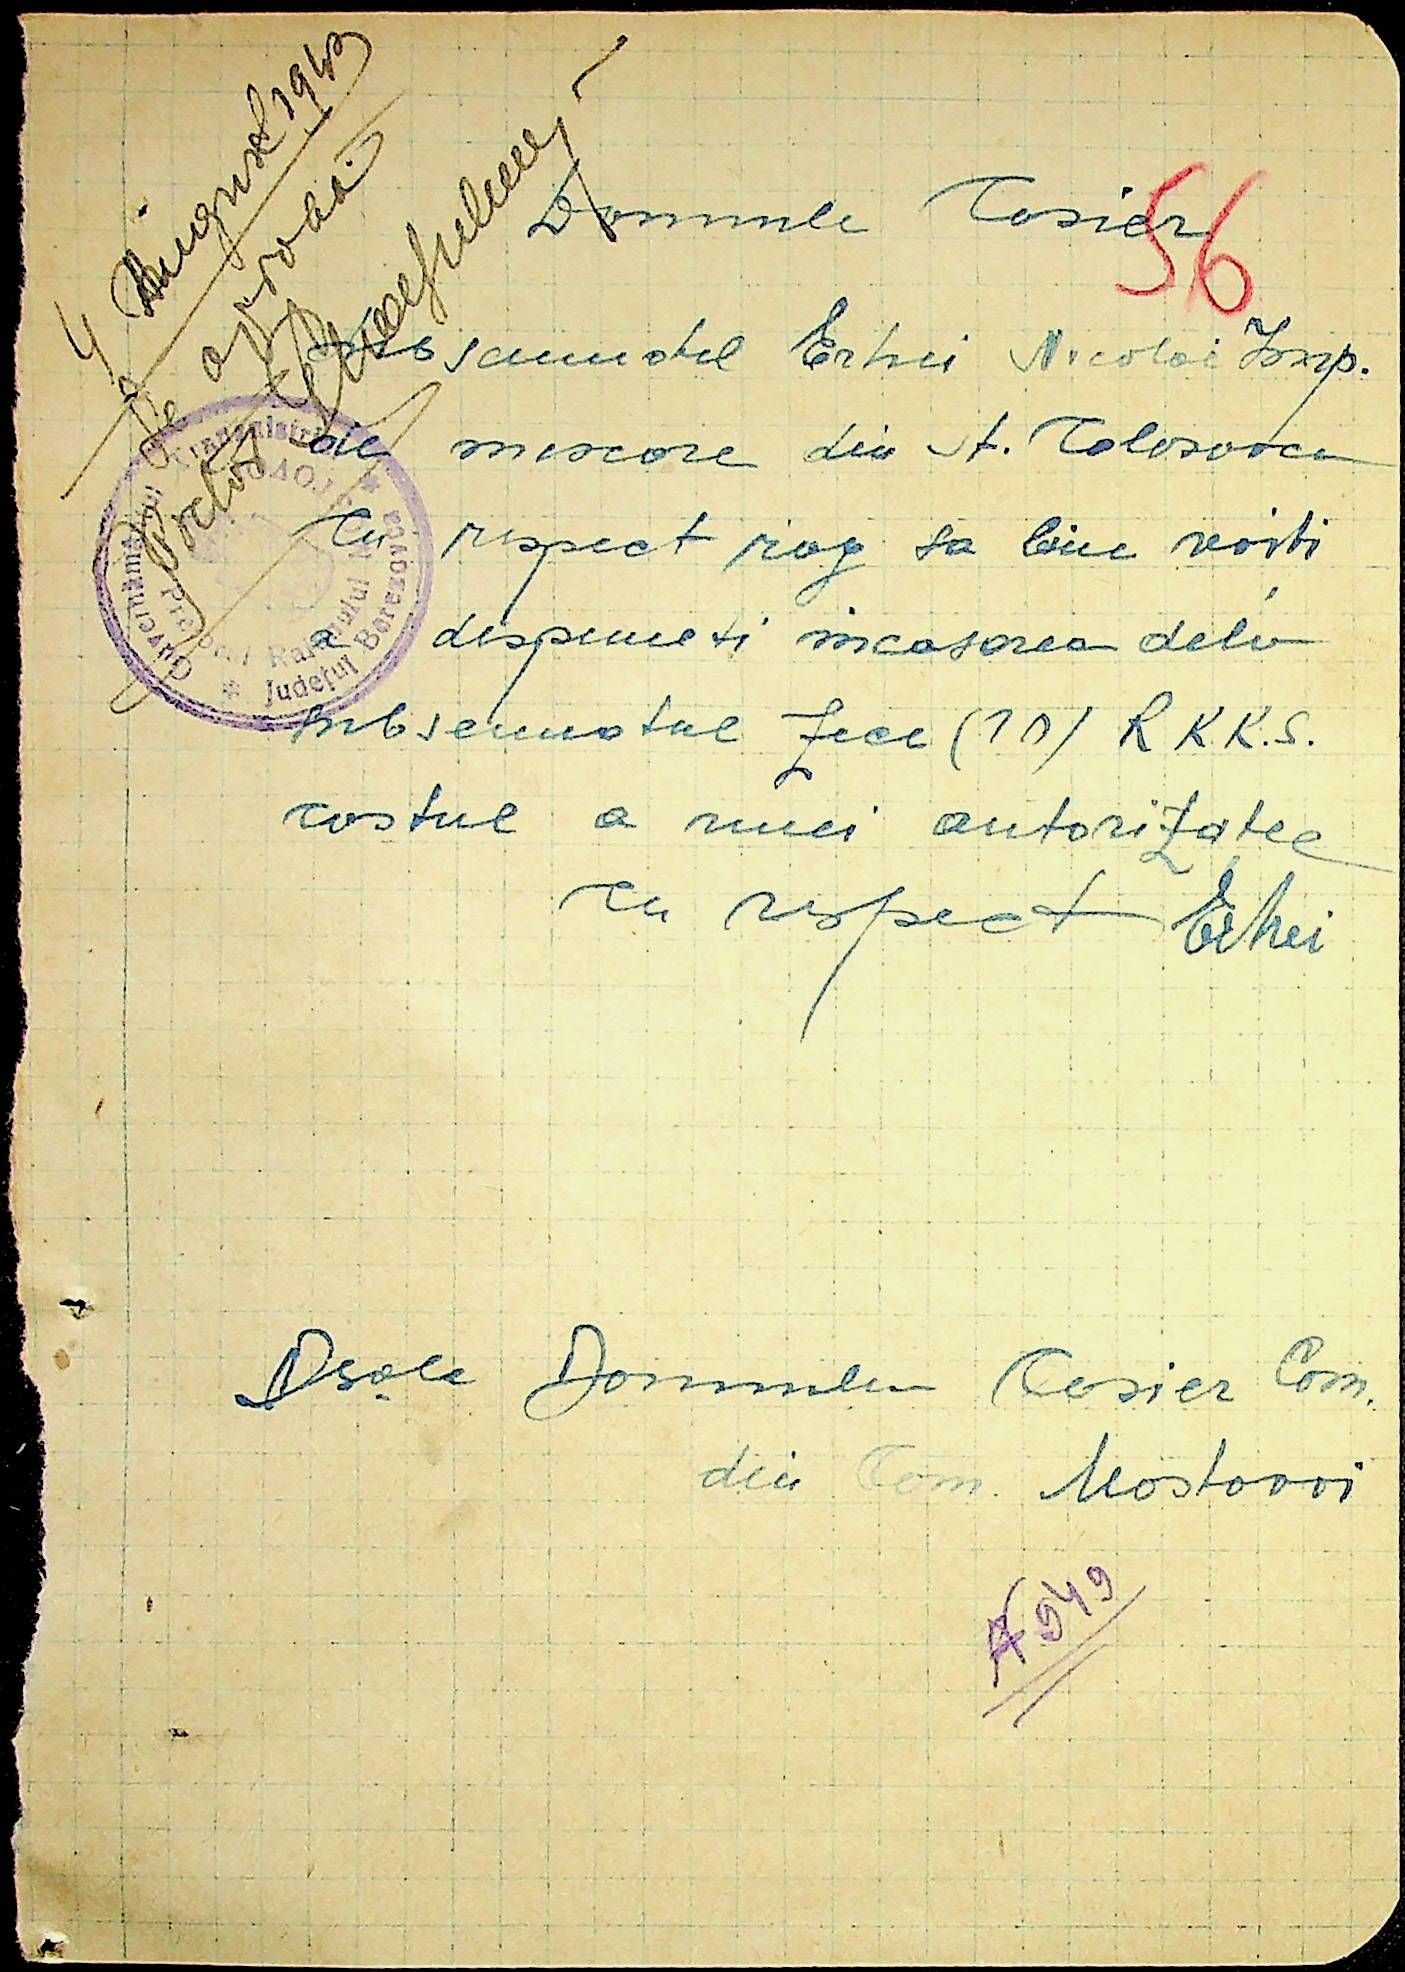 4 August 1943
Se aprobă
Pretor
Guvernământul Transnistriei
Pretori Raionului
Județul Berezovca
56
Domnule Casier
Subsamnatul Erhei Nicolai Imp.
de miscare din st. Colosovca
Cu respect rog sa bine voiti
a dispuneti incasarea dela
subsemnatul Zece (10) R.K.K.S.
costul a unei autorizatee
cu respect Erhei
Dsale Domnului Casier Com.
din Com. Mostovoi
A 949